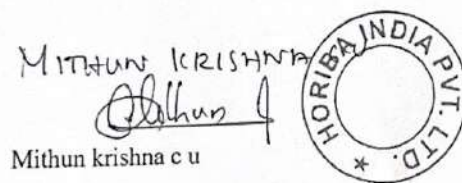 MITHUN KRISHNA
Mithun
Mithun krishna c u
HORIBA INDIA PVT. LTD. *